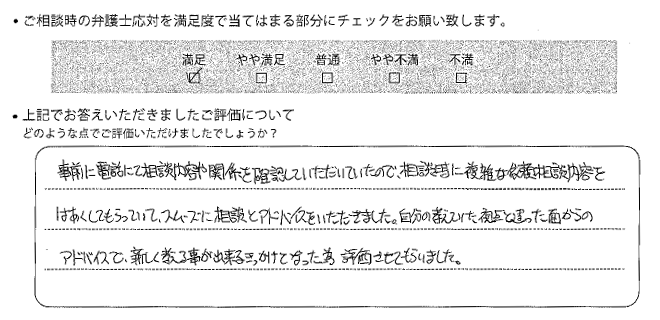 ・ご相談時の弁護士応対を満足度で当てはまる部分にチェックをお願い致します。
満足 やや満足 普通 やや不満 不満
☑ □ □ □ □
・上記でお答えいただきましたご評価について
どのような点でご評価いただけましたでしょうか?
事前に電話にて相談内容や関係を確認していただいていたので、相談時に複雑な相談内容を
はあくしてもらっていて、スムーズに相談とアドバイスをいただきました。自分の考えていた視点と違った面からの
アドバイスで、新しく考える事が出来るきっかけとなった為 評価させてもらいました。